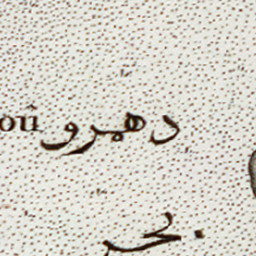 oû دهمرو
بحر